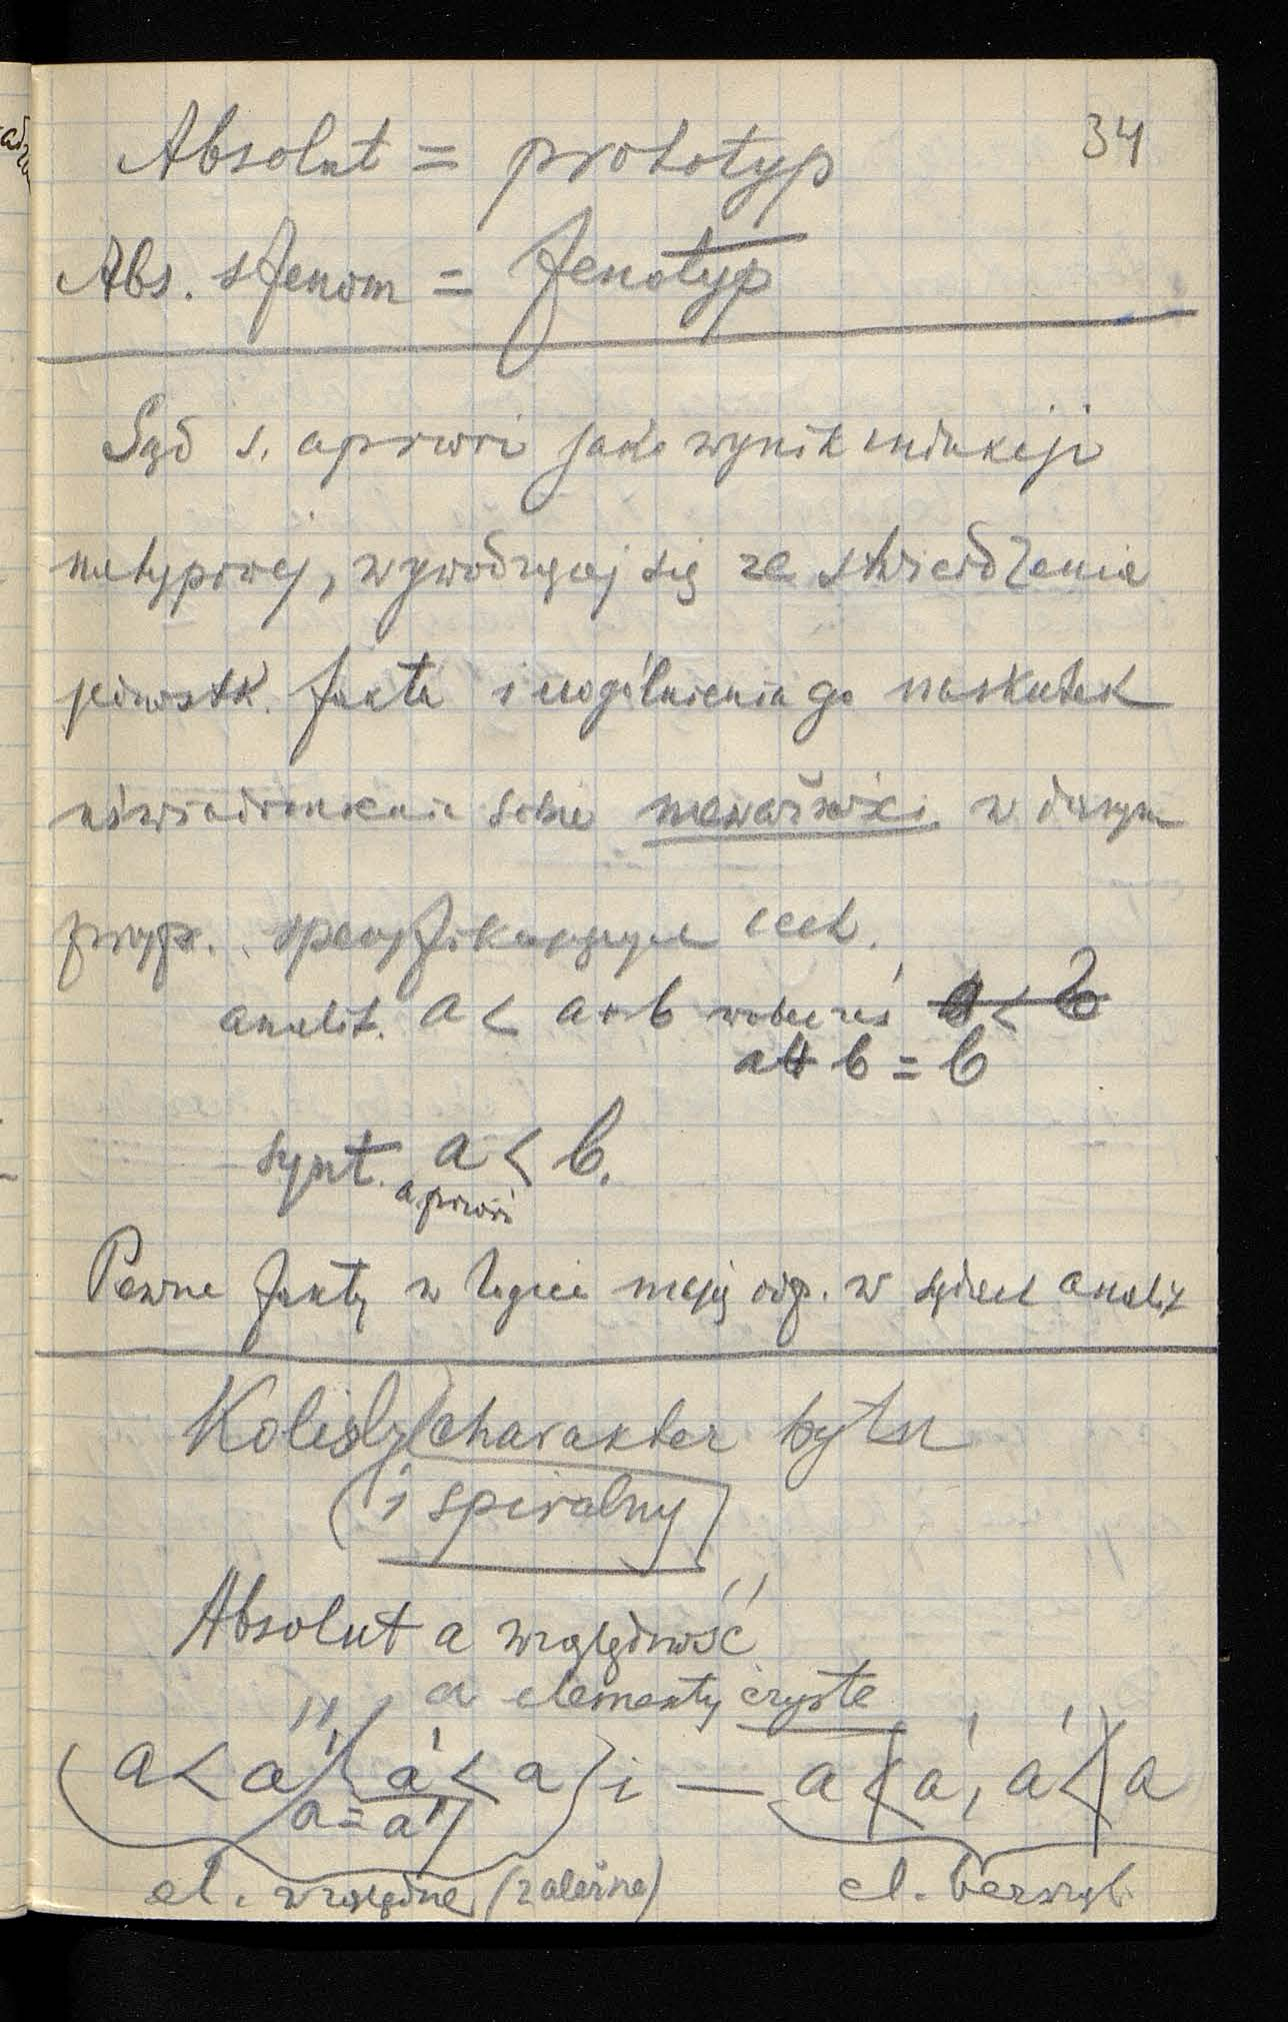 34
Absolut = prototyp
Abs. s fenom = fenotyp
Sąd s. apriori jako wynik indukcji
nietypowej, wywodzącej się ze stwierdzenia
jednostk. faktu i uogólnienia go naskutek
uświadomienia sobie nieważności w danym
przyp. specyfikujących cech.
analit. a < a+b wobec zaś a < b
a+b = b
synt. a < b.
apriori
Pewne fakty w logice mają odp. w sądach analit
Kolisty charakter bytu
(i spiralny)
Absolut a względność
a elementy czyste
(a < a' a' < a) i — a < a', a' < a
a = a'
el. względne (zależne) el. bezwzgl.